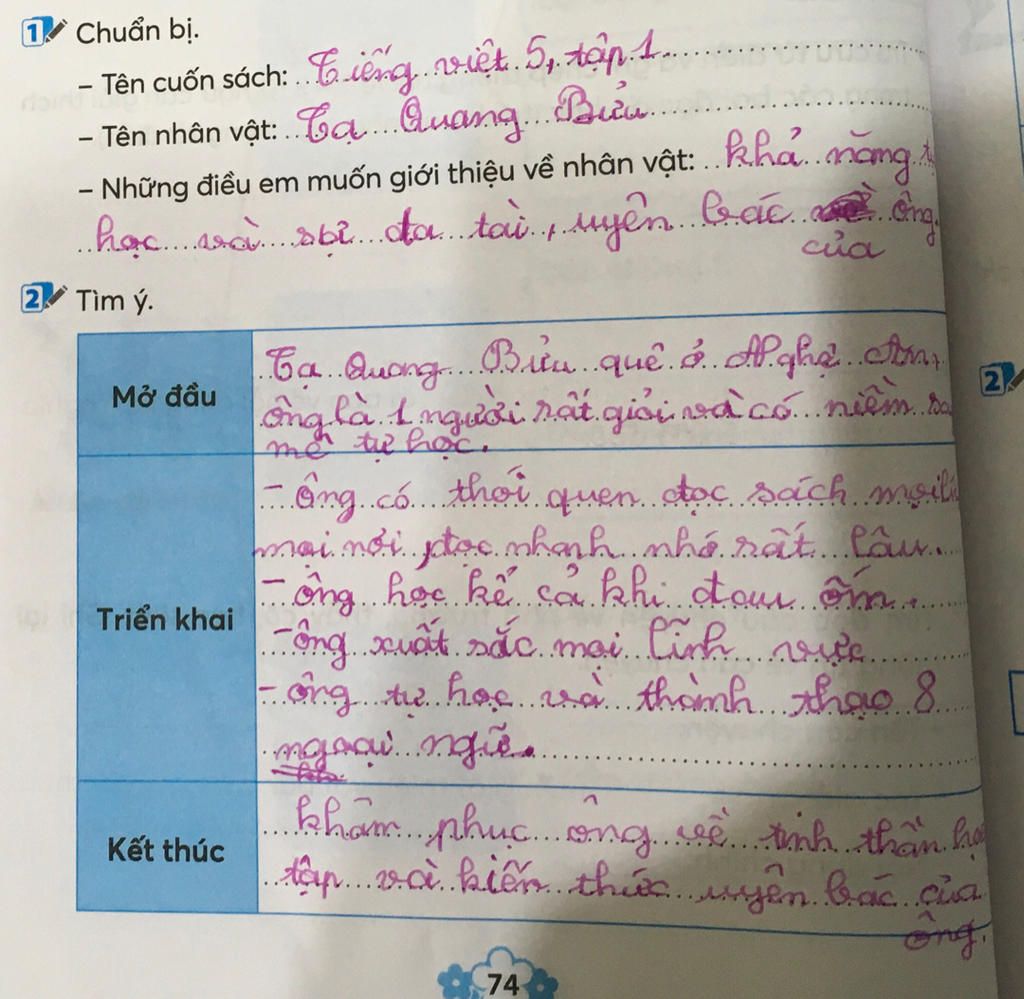 1 Chuẩn bị.
– Tên cuốn sách: Tiếng việt 5, tập 1
– Tên nhân vật: Tạ Quang Bửu
– Những điều em muốn giới thiệu về nhân vật: khả năng tự
học và sự đa tài, uyên bác ông.
của
2 Tìm ý.
Mở đầu
Tạ Quang Bửu quê ở Nghệ An,
ông là 1 người rất giỏi và có niềm say
mê tự học.
Triển khai
- ông có thói quen đọc sách mọi
mọi nơi, đọc nhanh nhớ rất lâu.
- ông học kể cả khi đau ốm.
- ông xuất sắc mọi lĩnh vực
- ông tự học và thành thạo 8
ngoại ngữ.
Kết thúc
khâm phục ông về tinh thần học
tập và kiến thức uyên bác của
ông.
74
2